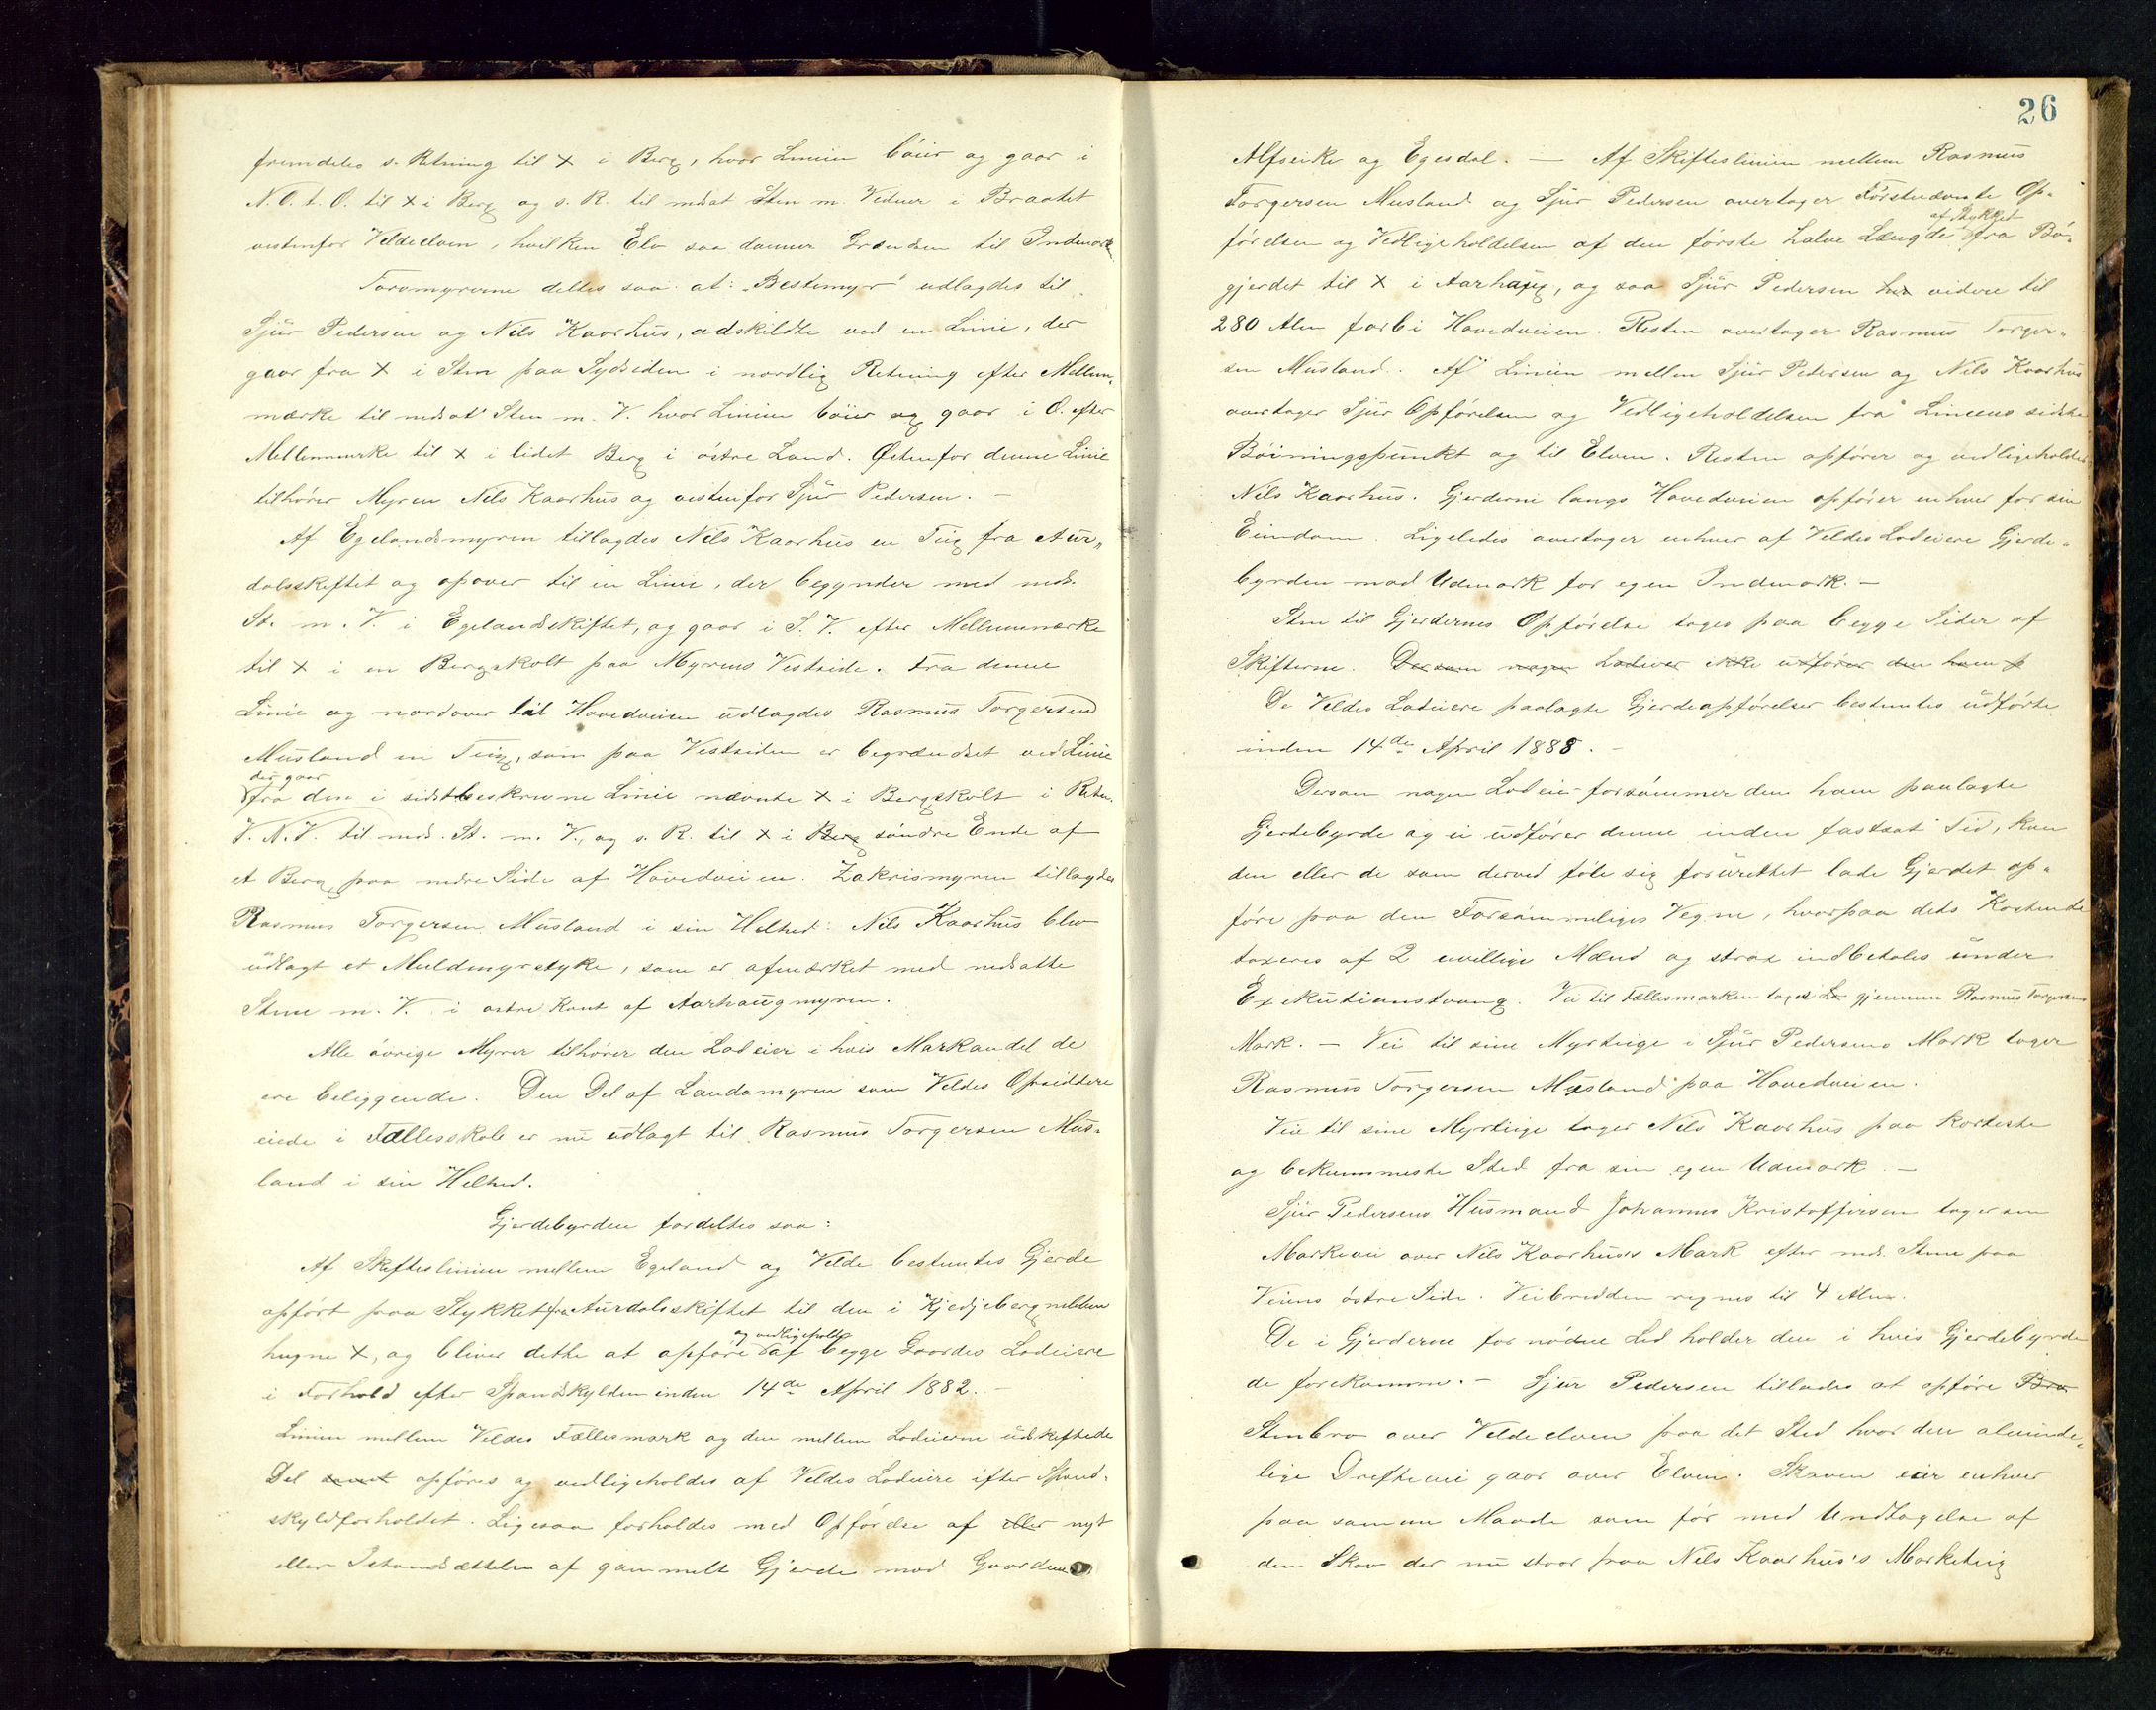 fremdeles s. Retning til X i Berg, hvor Linien bøier og gaar i
N.O.t.O. til X i Berg og s. R. til nedsat Sten m. Vidner i Braatet
vestenfor Veldeelven, hvilken Elv saa danner Grændsen til Indmark.
Torvmyrerne deltes saa at: „Bestemyr" udlagdes til
Sjur Pedersen og Nils Kaarhus, adskildte ved en Linie, der
gaar fra X i Sten paa Sydsiden i nordlig Retning efter Mellem„
mærke til nedsat Sten m. V. hvor Linien bøier og gaar i O. efter
Mellemmerke til X i lidet Berg i østre Land. Østenfor denne Linie
tilhører Myren Nils Kaarhus og vestenfor Sjur Pedersen. —
Af Egelandsmyren tillagdes Nils Kaarhus en Teig fra Aur„
dalsskiftet og opover til en Linie, der begynder med neds.
St. m. V. i Egelandsskiftet, og gaar i S.V. efter Mellemmærke
til X i en Bergskolt paa Myrens Vestside. Fra denne
Linie og nordover til Hovedveien udlagdes Rasmus Torgersen
Musland en Teig, som paa Vestsiden er begrændset ved Linie
der gaar
fra den i sidstbeskrevne Linie nævnte X i Bergskolt i Retn.
V.N.V. til neds. St. m. V., og s. R. til X i Berg søndre Ende af
et Berg paa nedre Side af Hovedveien. Zakrismyren tillagdes
Rasmus Torgersen Musland i sin Helhed. Nils Kaarhus blev
udlagt et Muldmyrstyke, som er afmærket med nedsatte
Stene m. V. i østre Kant af Aarhaugmyren.
Alle øvrige Myrer tilhører den Lodeier i hvis Markandel de
ere beliggende. Den Del af Landamyren som Veldes Opsiddere
eiede i Fællesskab er nu udlagt til Rasmus Torgersen Mus„
land i sin Helhed.
Gjerdebyrden fordeltes saa:
Af Skifteslinien mellem Egeland og Velde bestemtes Gjerde
opført paa Stykket fra Aurdalsskiftet til den i Kjedjeberg mellem
og vedligeholde
hugne X, og bliver dette at opføre af begge Gaardes Lodeiere
i Forhold efter Spandskylden inden 14de April 1882. —
Linien mellem Veldes Fællesmark og den mellem Lodeierne udskiftede
Del samt opføres og vedligeholdes af Veldes Lodeiere efter Spand„
skyldforholdet. Ligesaa forholdes med Opførelse af eller nyt
eller Istandsættelse af gammelt Gjerde mod Gaardene
26
Alfseike og Egesdal. — Af Skifteslinien mellem Rasmus
Torgersen Musland og Sjur Pedersen overtager Førstnævnte Op„
af Stykket
førelsen og Vedligeholdelsen af den første halve Længde fra Bø„
gjerdet til X i Aarhaug, og saa Sjur Pedersen her videre til
280 Alen forbi Hovedveien. Resten overtager Rasmus Torger„
sen Musland. Af Linien mellem Sjur Pedersen og Nils Kaarhus
overtager Sjur Opførelsen og Vedligeholdelsen fra Liniens sidste
Bøiningspunkt og til Elven. Resten opfører og vedligeholder
Nils Kaarhus. Gjerderne langs Hovedveien opfører enhver for sin
Eiendom. Ligeledes overtager enhver af Veldes Lodeiere Gjerde„
byrden mod Udmark for egen Indmark. —
Sten til Gjerdernes Opførelse tages paa begge Sider af
Skifterne. Dersom nogen Lodeier ikke udfører den ham p
De Veldes Lodeiere paalagte Gjerdeopførelser bestemtes udførte
inden 14de April 1888. —
Dersom nogen Lodeier forsømmer den ham paalagte
Gjerdebyrde og ei udfører denne inden fastsat Tid, kan
den eller de som derved føle sig forurettet lade Gjerdet op„
føre paa den Forsømmeliges Vegne, hvorpaa dets Kostende
taxeres af 2 uvillige Mænd og strax indbetales under
Exekutionstvang. Vei til Fællesmarken tages gjennem Rasmus Torgersens
Mark. — Vei til sine Myrteige i Sjur Pedersens Mark tager
Rasmus Torgersen Musland paa Hovedveien.
Veie til sine Myrteige tager Nils Kaarhus paa korteste
og bekvemmeste Sted fra sin egen Udmark. —
Sjur Pedersens Husmand Johannes Kristoffersen tager sin
Markevei over Nils Kaarhus's Mark efter neds. Stene paa
Veiens østre Side. Veibredden regnes til 4 Alen.
De i Gjerderne fornødne Led holder den i hvis Gjerdebyrde
de forekomme. — Sjur Pedersen tillades at opføre Bro
Stenbro over Veldeelven paa det Sted hvor den alminde„
lige Driftevei gaar over Elven. Skoven eier enhver
paa samme Maade som før med Undtagelse af
den Skov der nu staar paa Nils Kaarhus's Marketeig